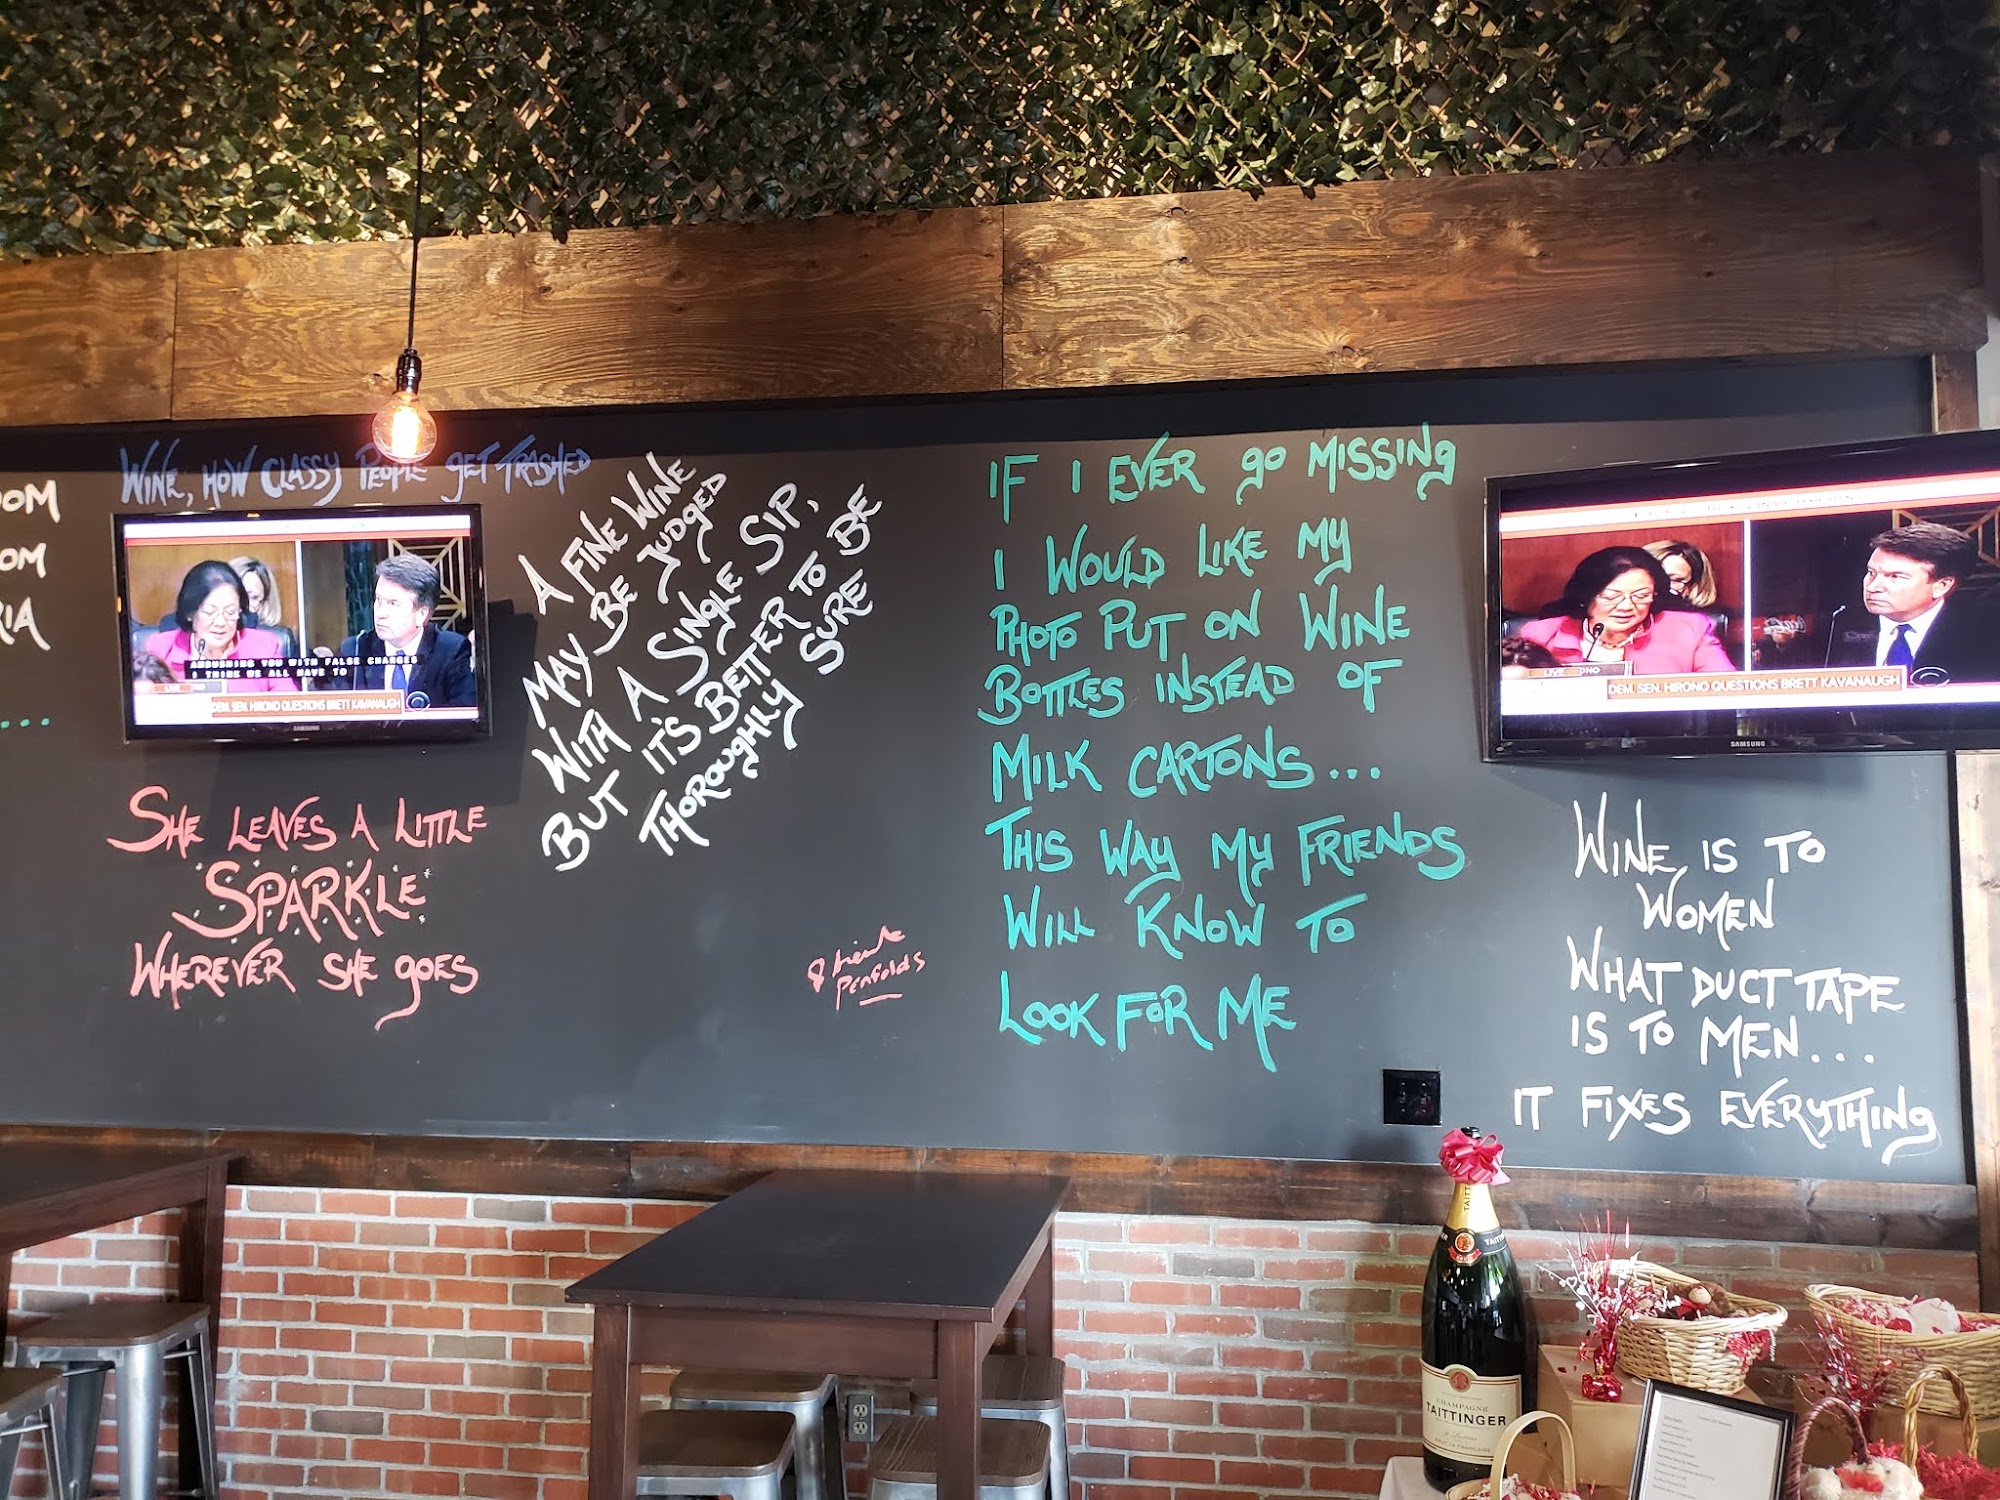 WINE, HOW CLASSY PEOPLE GET TRASHED
OOM
OM
RIA
...
AMBUSHING YOU WITH FALSE CHARGES
I THINK WE ALL HAVE TO
LIVE
DEM. SEN. HIRONO QUESTIONS BRETT KAVANAUGH
SAMSUNG
SHE LEAVES A LITTLE
SPARKLE
WHEREVER SHE GOES
A FINE WINE
MAY BE JUDGED
WITH A SINGLE SIP,
BUT IT'S BETTER TO BE
THOROUGHLY SURE
Penfolds
IF I EVER GO MISSING
I WOULD LIKE MY
PHOTO PUT ON WINE
BOTTLES INSTEAD OF
MILK CARTONS...
THIS WAY MY FRIENDS
WILL KNOW TO
LOOK FOR ME
LIVE
DEM. SEN. HIRONO QUESTIONS BRETT KAVANAUGH
SAMSUNG
WINE IS TO
WOMEN
WHAT DUCT TAPE
IS TO MEN...
IT FIXES EVERYTHING
CHAMPAGNE
TAITTINGER